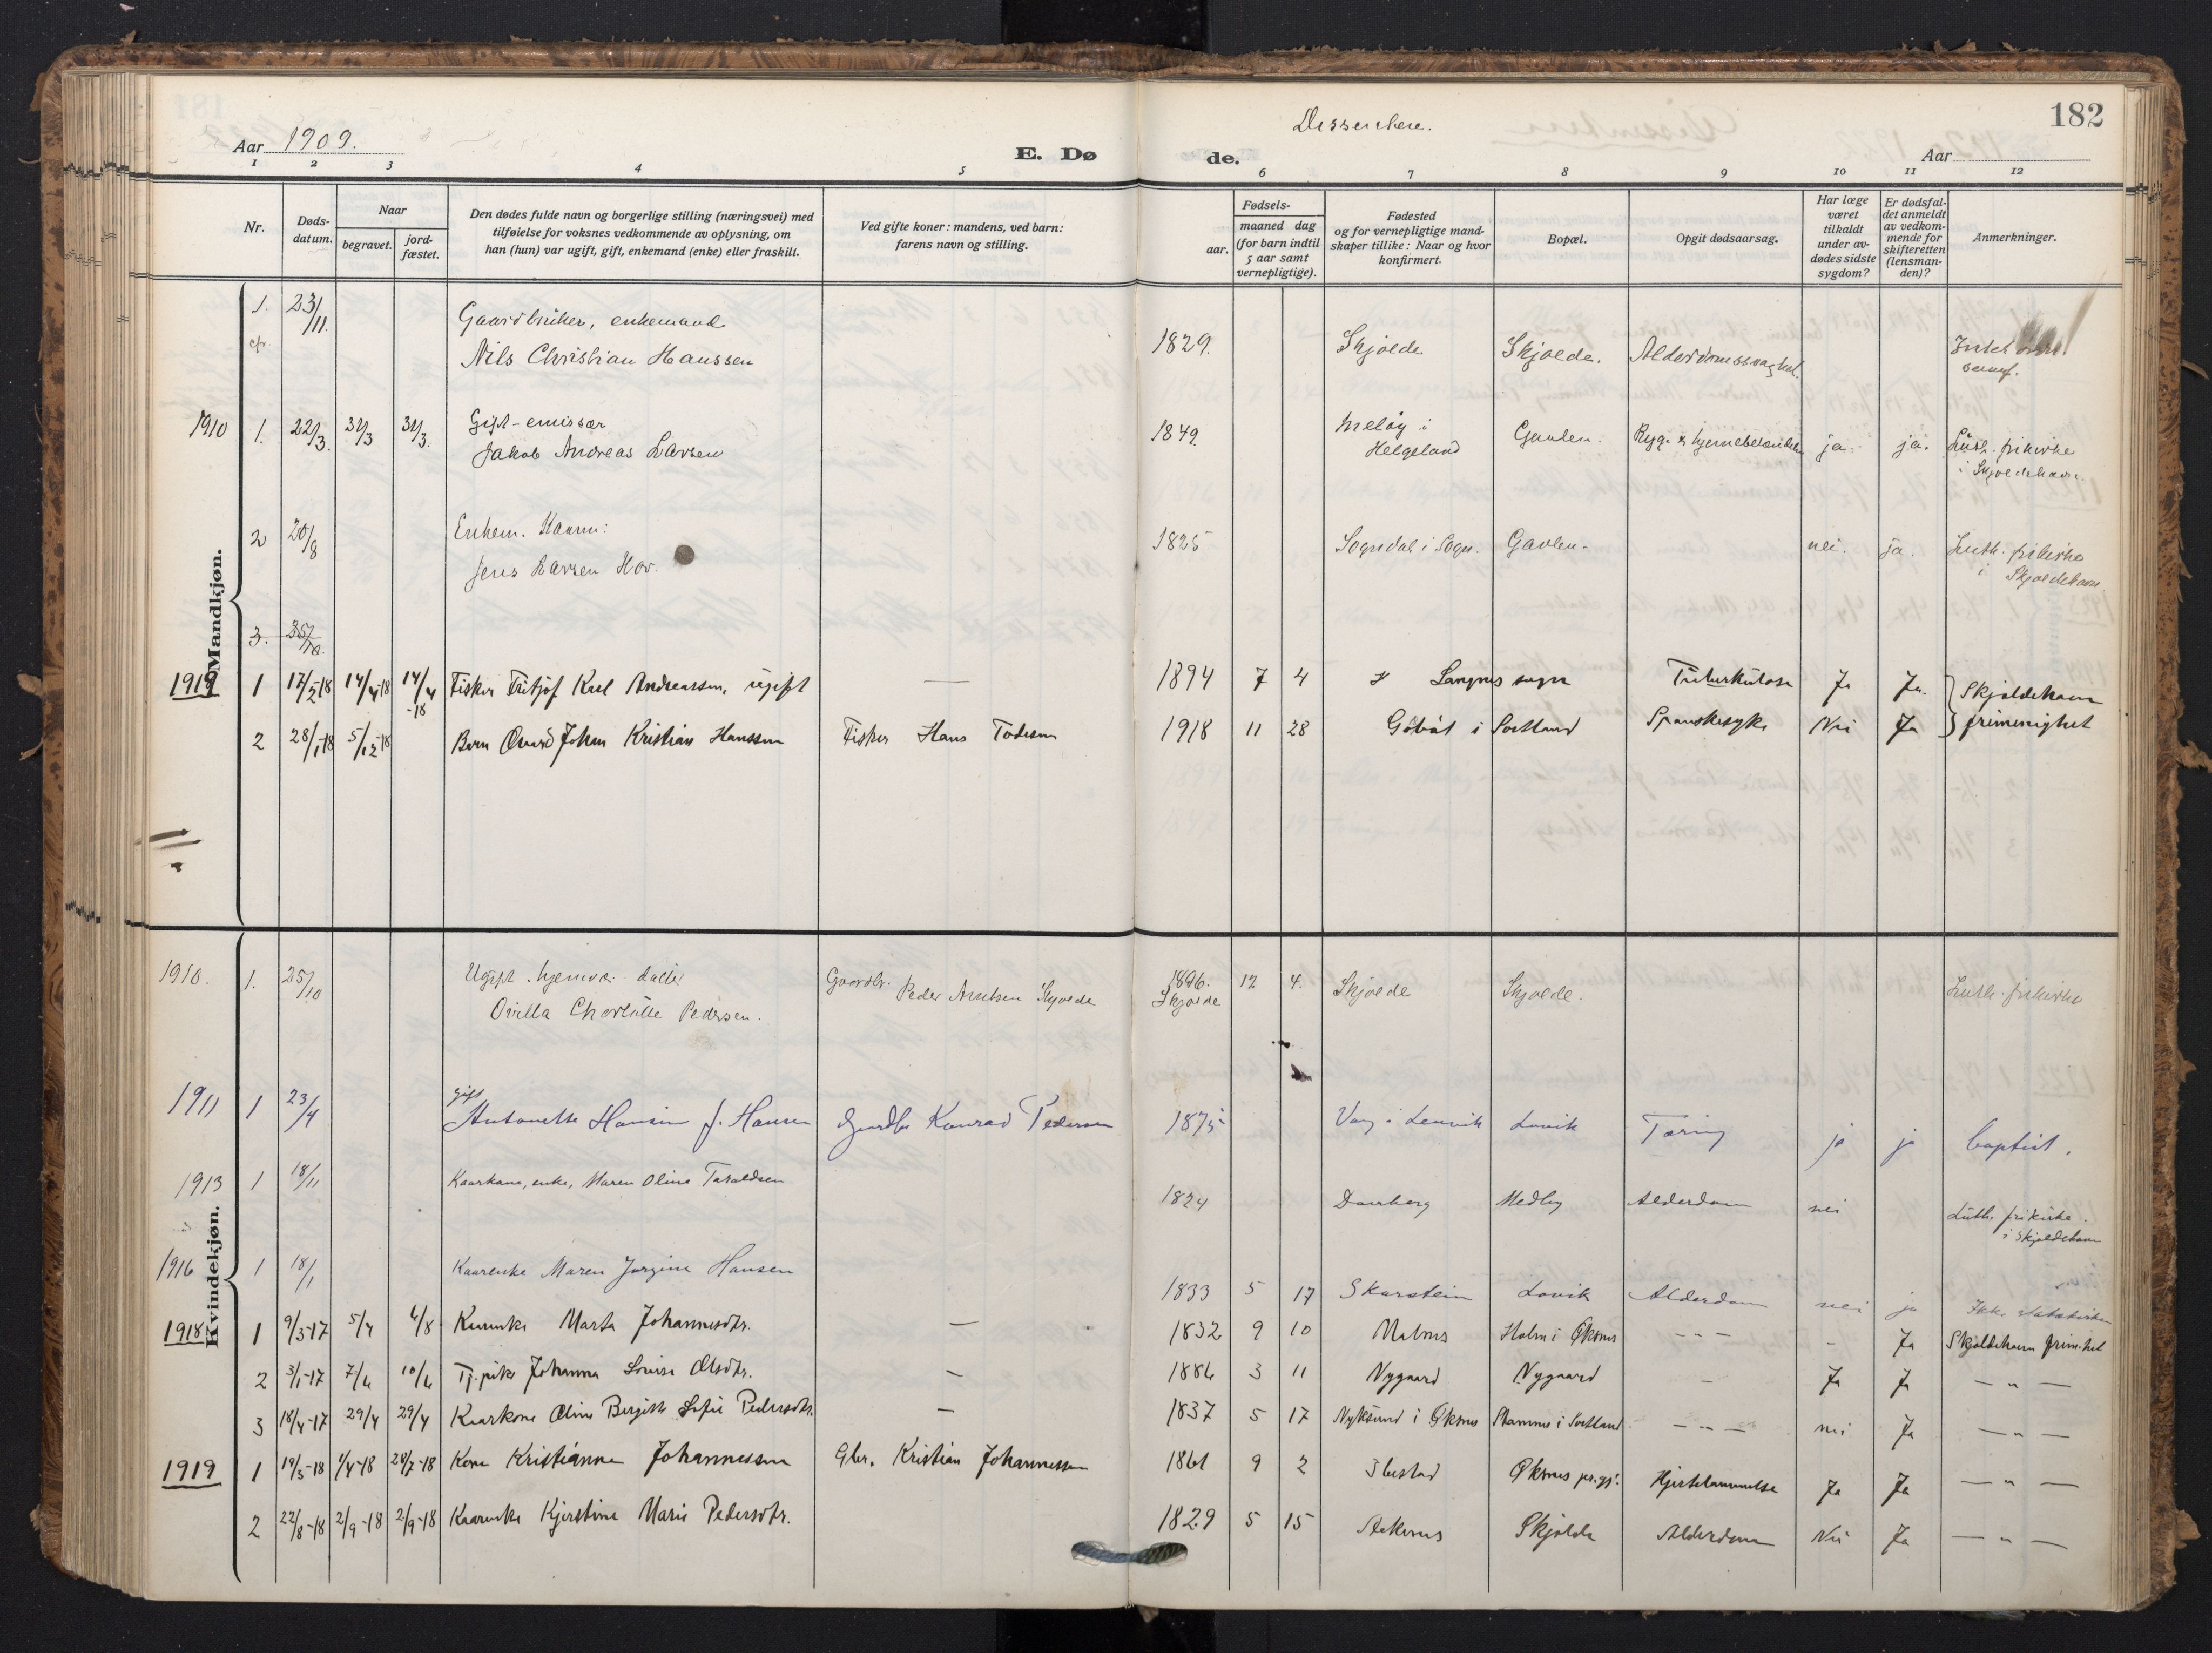 182
Aar 1909.
E. Døde.
Dissentere.
Aar
1 2 3 4 5 6 7 8 9 10 11 12
Nr.
Døds-
datum.
Naar
begravet.
jord-
fæstet.
Den dødes fulde navn og borgerlige stilling (næringsvei) med
tilføielse for voksnes vedkommende av oplysning, om
han (hun) var ugift, gift, enkemand (enke) eller fraskilt.
Ved gifte koner: mandens, ved barn:
farens navn og stilling.
Fødsels-
aar.
maaned dag
(for barn indtil
5 aar samt
vernepligtige).
Fødested
og for vernepligtige mand-
skaper tillike: Naar og hvor
konfirmert.
Bopæl.
Opgit dødsaarsag.
Har læge
været
tilkaldt
under av-
dødes sidste
sygdom?
Er dødsfal-
det anmeldt
av vedkom-
mende for
skifteretten
(lensman-
den)?
Anmerkninger.
Mandkjøn.
1. 23/11. Gaardbruker, enkemand
cfr. Nils Christian Hanssen 1829. Skjolde Skjolde. Alderdomssvaghet.
1910 1. 22/3. 31/3 31/3. Gift - emissær
Jakob Andreas Larsen 1849. Meløy i
Helgeland Gavlen. Ryg- & hjernebetændelse ja. ja. Luth. frikirke
i Skjoldehavn.
2 20/8 Enkem. Kaarm:
Jens Larsen Hov. 1825 Sogndal i Sogn. Gavlen. nei. ja. Luth. frikirke
i Skjoldehavn
3. 25/10.
1919 1 17/2-18 14/4-18 14/4-18 Fisker Fritjof Karl Andreassen, ugift — 1894 7 4 Langnes sogn Tuberkulose Ja Ja. Skjoldehavn
2 28/1-18 5/12-18 Barn Edvard Johan Kristian Hanssen Fisker Hans Todesen 1918 11 28 Gåbåt i Sortland Spanskesyke Nei Ja frimenighet
Kvindekjøn.
1910. 1. 25/10 Ugift. hjemmev. datter
Ovilla Charlotte Pedersen. Gaardbr. Peder Arntsen Skjolde 1896.
Skjolde 12 4. Skjolde Skjolde. Luth. frikirke
1911 1 23/4 gift
Antonette Hansine f. Hansen Gaardbr Konrad Pedersen 1875 Vang i Lenvik Lovik Tæring ja ja baptist.
1913 1 18/11 Kaarkone, enke, Maren Oline Taraldsen 1824 Daarberg Medby Alderdom nei Luth. frikirke.
i Skjoldehavn
1916 1 18/1 Kaarenke Maren Jørgine Hansen 1833 5 17 Skarstein Lovik Alderdom nei ja Ikke statskirken
1918 1 9/3-17 5/4 6/8 Kaarenke Marta Johannesdtr. — 1832 9 10 Malnes Holm i Øksnes - - - - Ja Skjoldehavn frim.het
2 3/1-17 7/6 10/6 Tj.pike Johanna Lovise Olsdtr. — 1886 3 11 Nygaard Nygaard - Ja Ja — " —
3 18/4-17 29/4 29/4 Kaarkone Oline Bergitte Sofie Pedersdtr. — 1837 5 17 Nyksund i Øksnes Stamnes i Sortland - - - nei Ja — " —
1919 1 19/3-18 1/4-18 28/7-18 Kone Kristianne Johannessen Gbr. Kristian Johannessen 1861 9 2 Ibestad Øksnes pr.gj. Hjertelammelse Ja Ja — " —
2 22/8-18 2/9-18 2/9-18 Kaarenke Kjerstine Marie Pedersdtr. 1829 5 15 Aaknes Skjolde Alderdom Nei Ja — " —